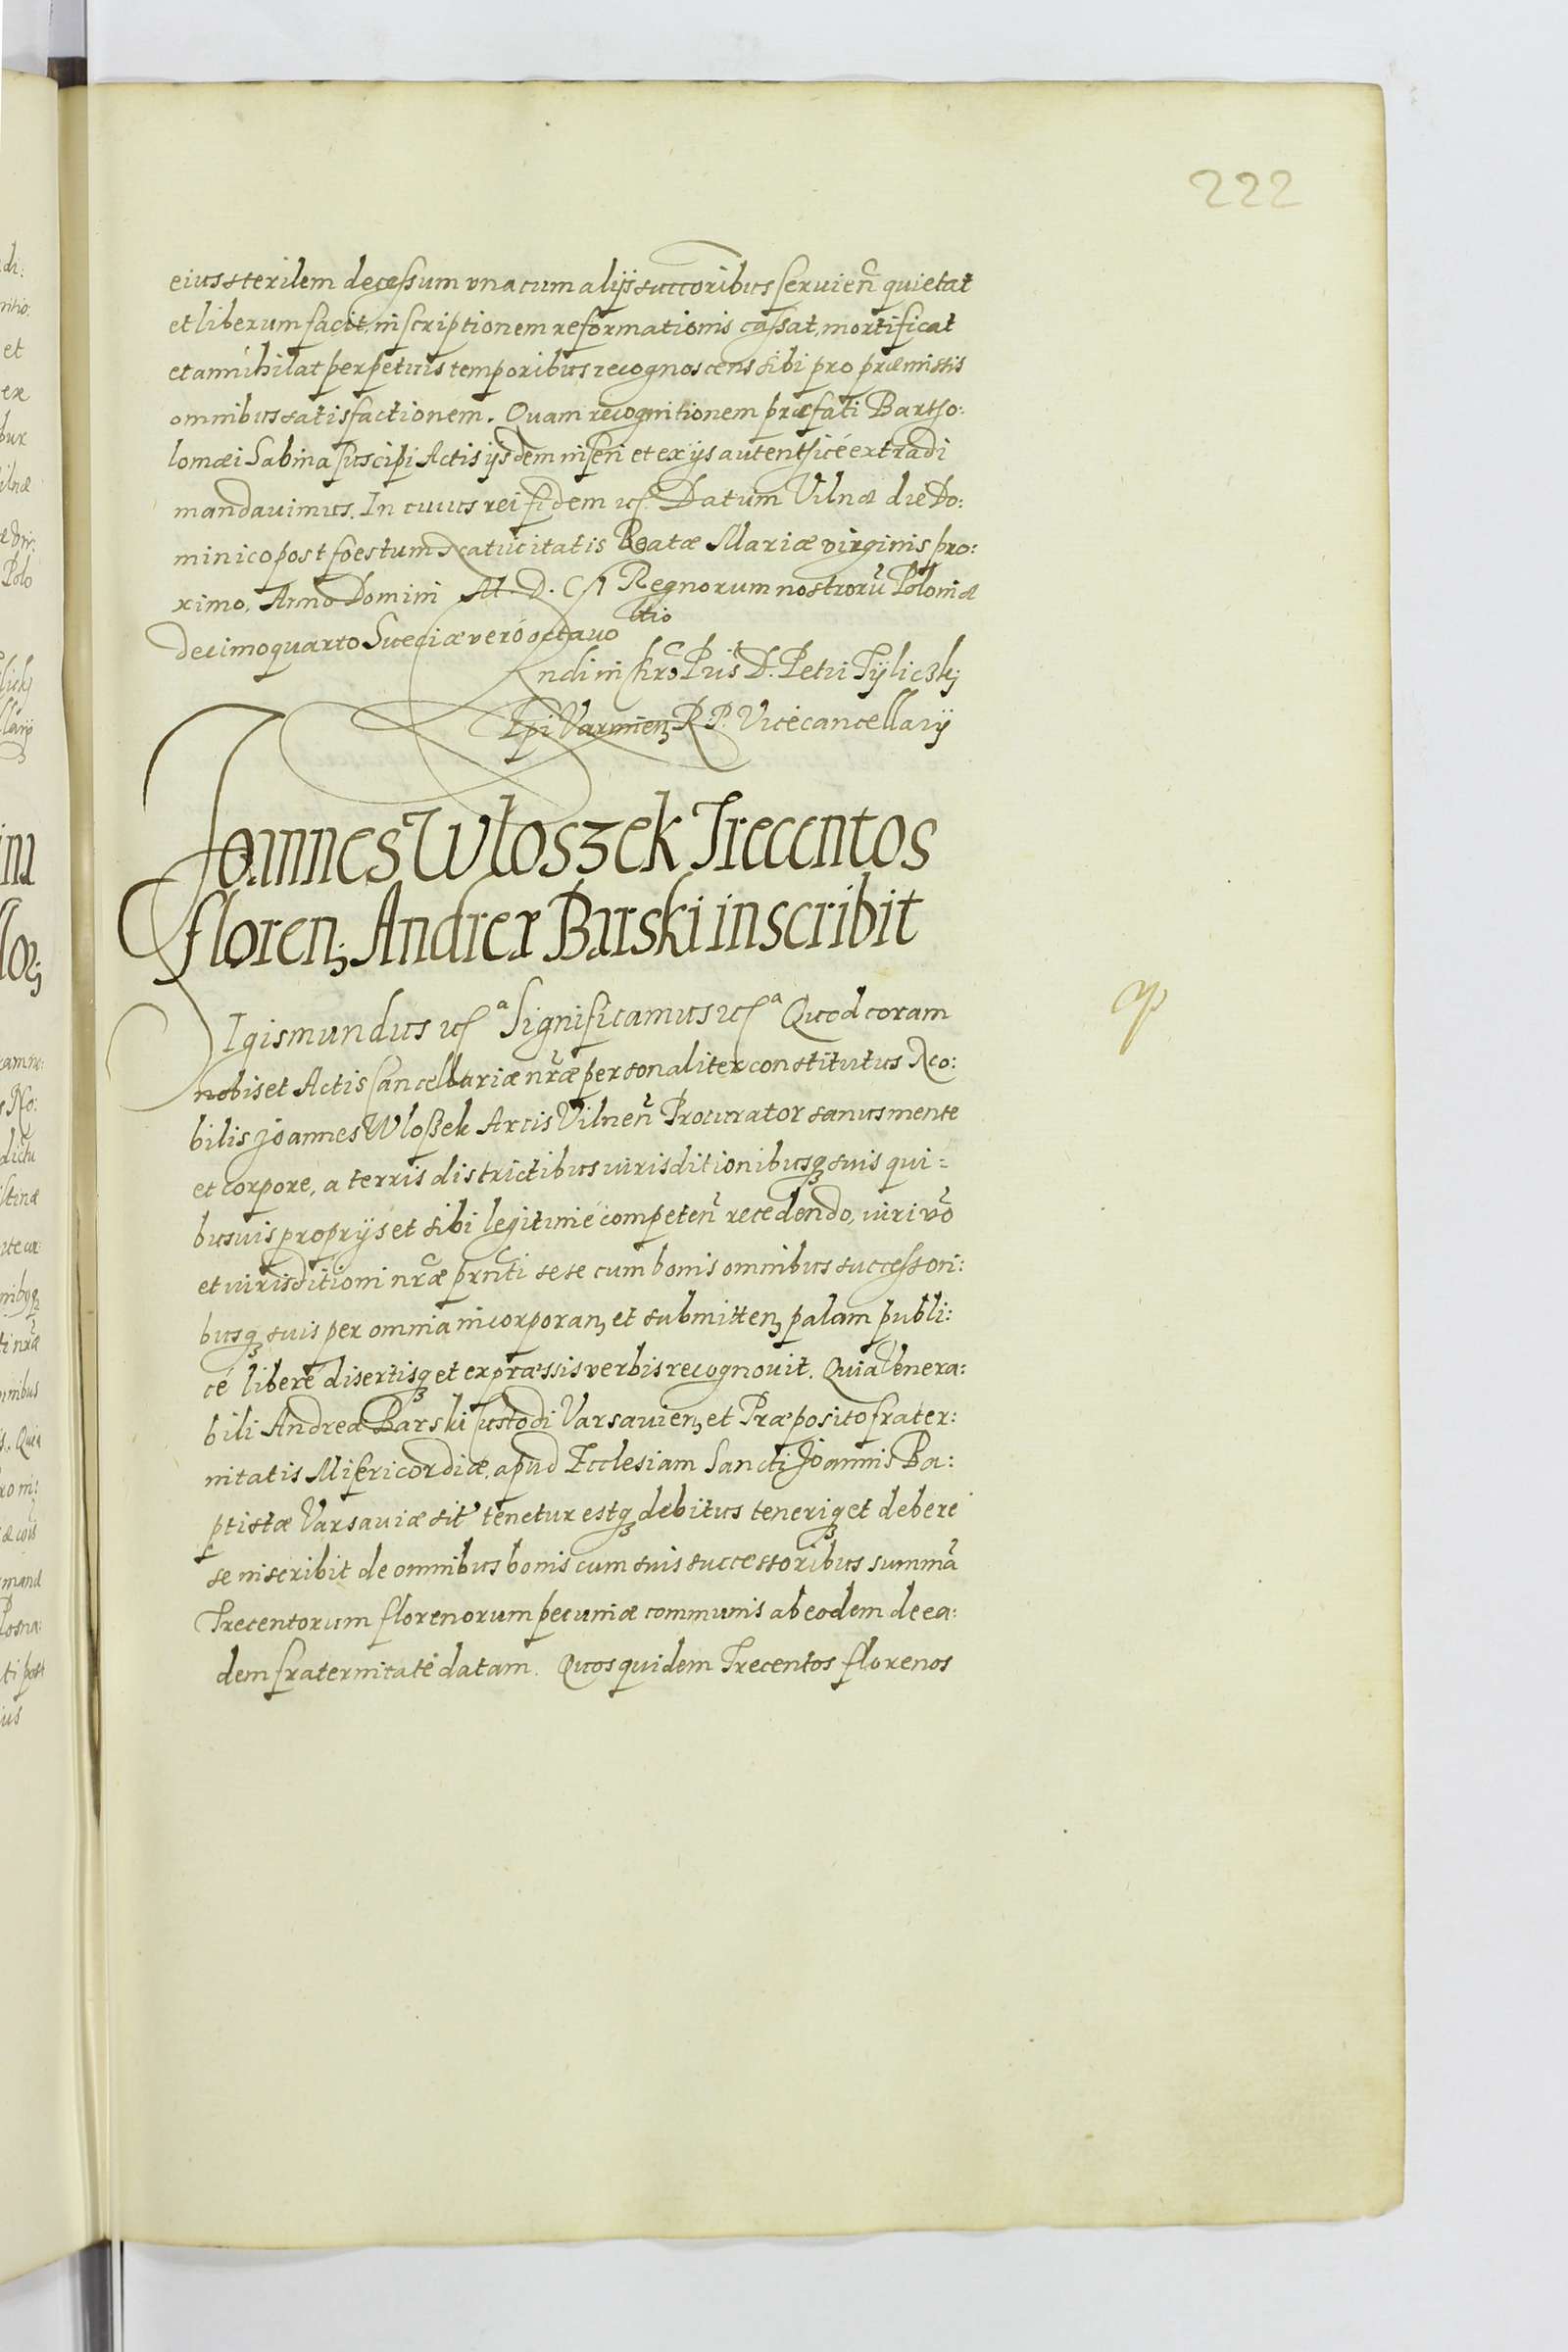 222
eius sterilem decessum vna cum alijs succoribus seruien̄ quietat
et liberum facit, inscriptionem reformationis cassat, mortificat
et annihilat perpetuis temporibus recognoscens sibi pro præmissis
omnibus satisfactionem. Quam recognitionem præfati Bartho:
lomæi Sabina suscipi Actis ijsdem inseri et ex ijs autenthicé extradi
mandauimus. In cuius rei fidem etc. Datum Vilnæ die Do:
minico post foestum Natiuitatis Beatæ Mariæ virginis pro:
ximo, Anno Domini M. D. CI Regnorum nostrorū Poloniæ
decimoquarto Sueciæ veró octauo
Petri Tÿliczkj
Epi Varmien; R. P. Vicécancellarij
Joannes Wloszek Trecentos
floren; Andreæ Barski inscribit
Sigismundus etc.a Significamus etc.a Quod coram
nobis et Actis Cancellariæ nr̄æ personaliter constitutus No:
bilis Joannes Wloszek Arcis Vilnen̄ Procurator sanus mente
et corpore, a terris districtibus iurisditionibusq; suis qui=
busuis proprijs et sibi legitimé competen̄ recedendo, iuri vō
et iurisditioni nr̄æ prn̄ti sese cum bonis omnibus successori:
busq; suis per omnia incorporan; et submitten; palam publi:
cé liberé disertisq; et expræssis verbis recognouit. Quia Venera:
bili Andreæ Barski Custodi Varsauien; et Præposito frater:
nitatis Misericordiæ, apud Ecclesiam Sancti Joannis Ba:
ptistæ Varsauiæ sit' tenetur estq; debitus teneriq; et deberé
se inscribit de omnibus bonis cum suis successoribus summā
Trecentorum florenorum pecuniæ communis ab eodem de ea:
dem fraternitaté datam. Quos quidem Trecentos florenos